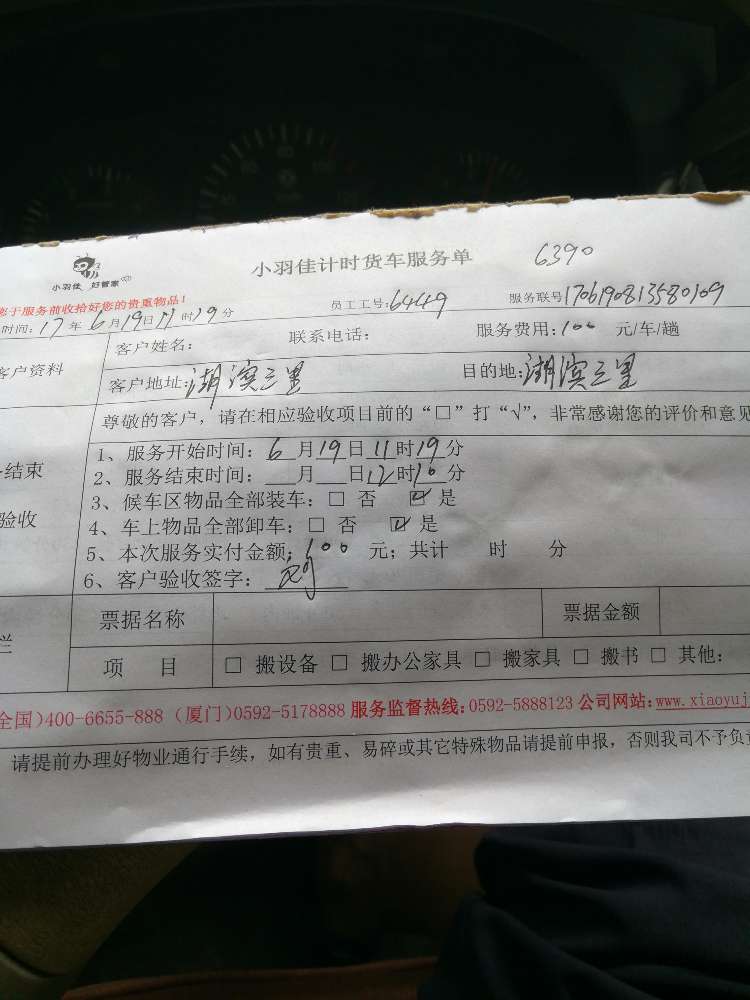 小羽佳计时货车服务单
6390
小羽佳 好管家
您于服务前收拾好您的贵重物品!
时间:17年6月19日11时19分
员工工号:6449
服务联号1706190813580109
客户资料
客户姓名:
联系电话:
服务费用:100 元/车/趟
客户地址:湖滨三里
目的地:湖滨三里
尊敬的客户,请在相应验收项目前的“□”打“√”,非常感谢您的评价和意见
结束
验收
1、服务开始时间:6月19日11时19分
2、服务结束时间:__月__日12时10分
3、候车区物品全部装车:□ 否 ☑ 是
4、车上物品全部卸车:□ 否 ☑ 是
5、本次服务实付金额:100 元;共计 时 分
6、客户验收签字:
栏
票据名称
票据金额
项 目
□ 搬设备 □ 搬办公家具 □ 搬家具 □ 搬书 □ 其他:
全国)400-6655-888 (厦门)0592-5178888 服务监督热线:0592-5888123 公司网站:www.xiaoyuj
请提前办理好物业通行手续,如有贵重、易碎或其它特殊物品请提前申报,否则我司不予负责